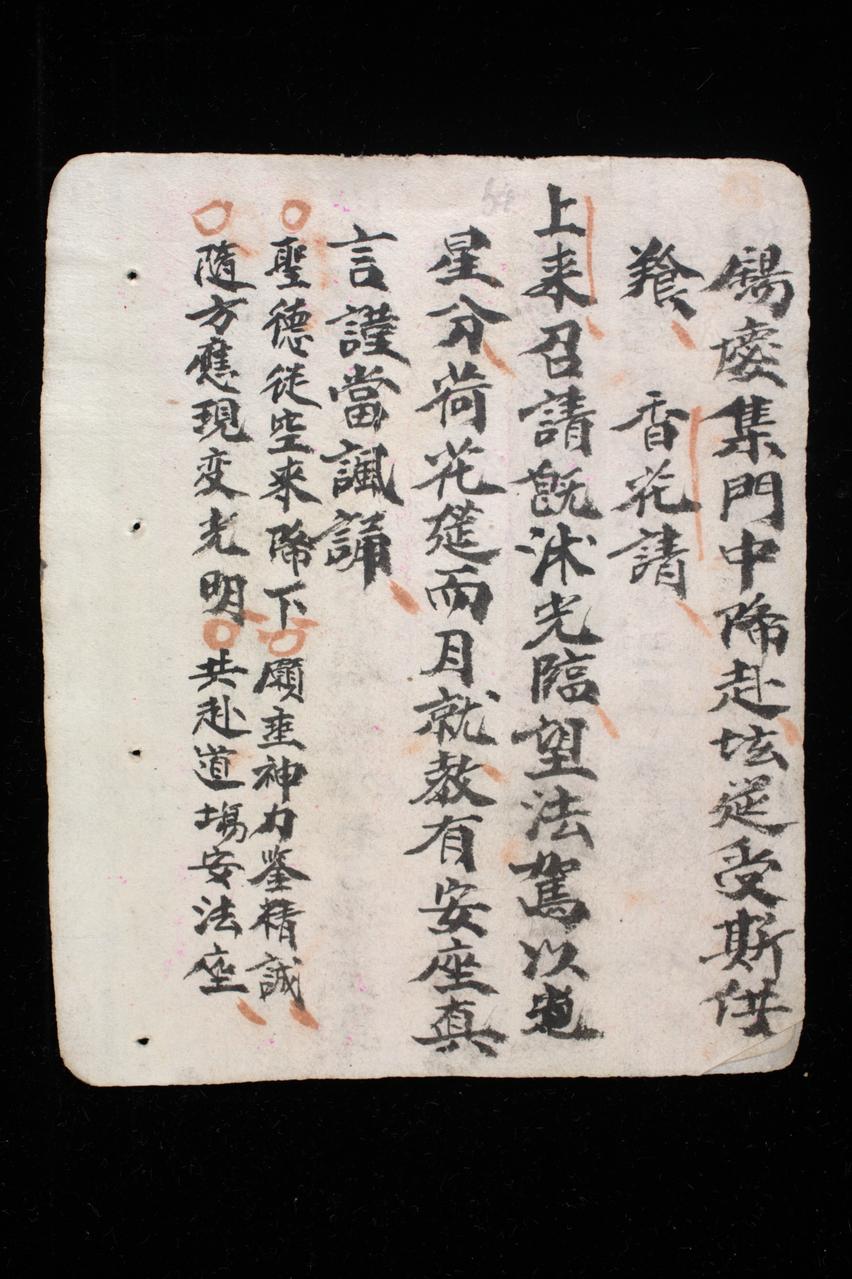 錫慶集門中降赴坛筵受斯供
飱　香花請
上来召請既沐光臨望法駕以
星分荷花筵而月就教有安座真
言謹當諷誦
聖德從空来降下　願垂神力鉴精誠
隨方應現变光明　共赴道場安法座